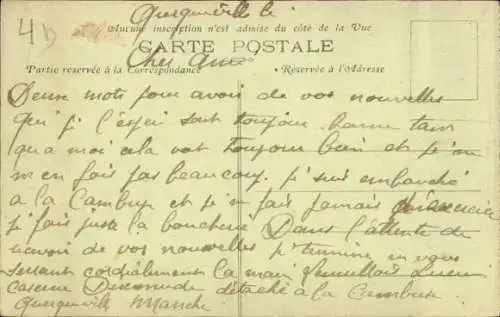 4b
Querqueville le
Aucune inscription n'est admise du côté de la Vue
CARTE POSTALE
Cher Ami
Partie réservée à la Correspondance
Réservée à l'Adresse
Deux mots pour avoir de vos nouvelles
qui je l'espèi sont toujour bonne tant
qua moi cela vat toujour bien et je n'
m en fais pas beaucoup. je suis embauché
a la Cambuse et je n fais jamais
je fais juste la boucherie Dans l'attente de
recevoir de vos nouvelles je termine en vous
serrant cordialement la main Lucien
caserne détaché a la Cambuse
Querqueville Manche